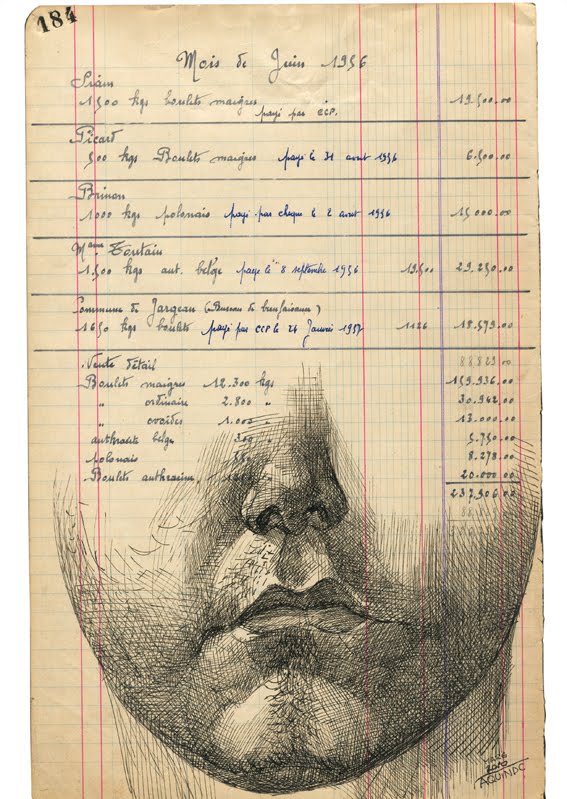 184
Mois de Juin 1956
1500 kgs boulets maigres payé par CCP. 19.500.00
Picart
500 kgs Boulets maigres payé le 31 aout 1956 6.500.00
Brinon
1000 kgs polonais payé par cheque le 2 aout 1956 15.000.00
Mame Toutain
1.500 kgs ant. belge payé le 8 septembre 1956 19.500 29.250.00
Commune de Jargeau (Bureau de bienfaisance)
1650 kgs boulets payé par CCP le 24 Janvier 1957 1126 18.579.00
Vente détail 88829.00
Boulets maigres 12.300 kgs 159.936.00
" ordinaire 2.800 " 30.942.00
" ovoïdes 1.000 " 13.000.00
anthracite belge 300 " 5.750.00
polonais 8.278.00
Boulets anthracine 20.000.00
237.906.00
2010
AQUINDO